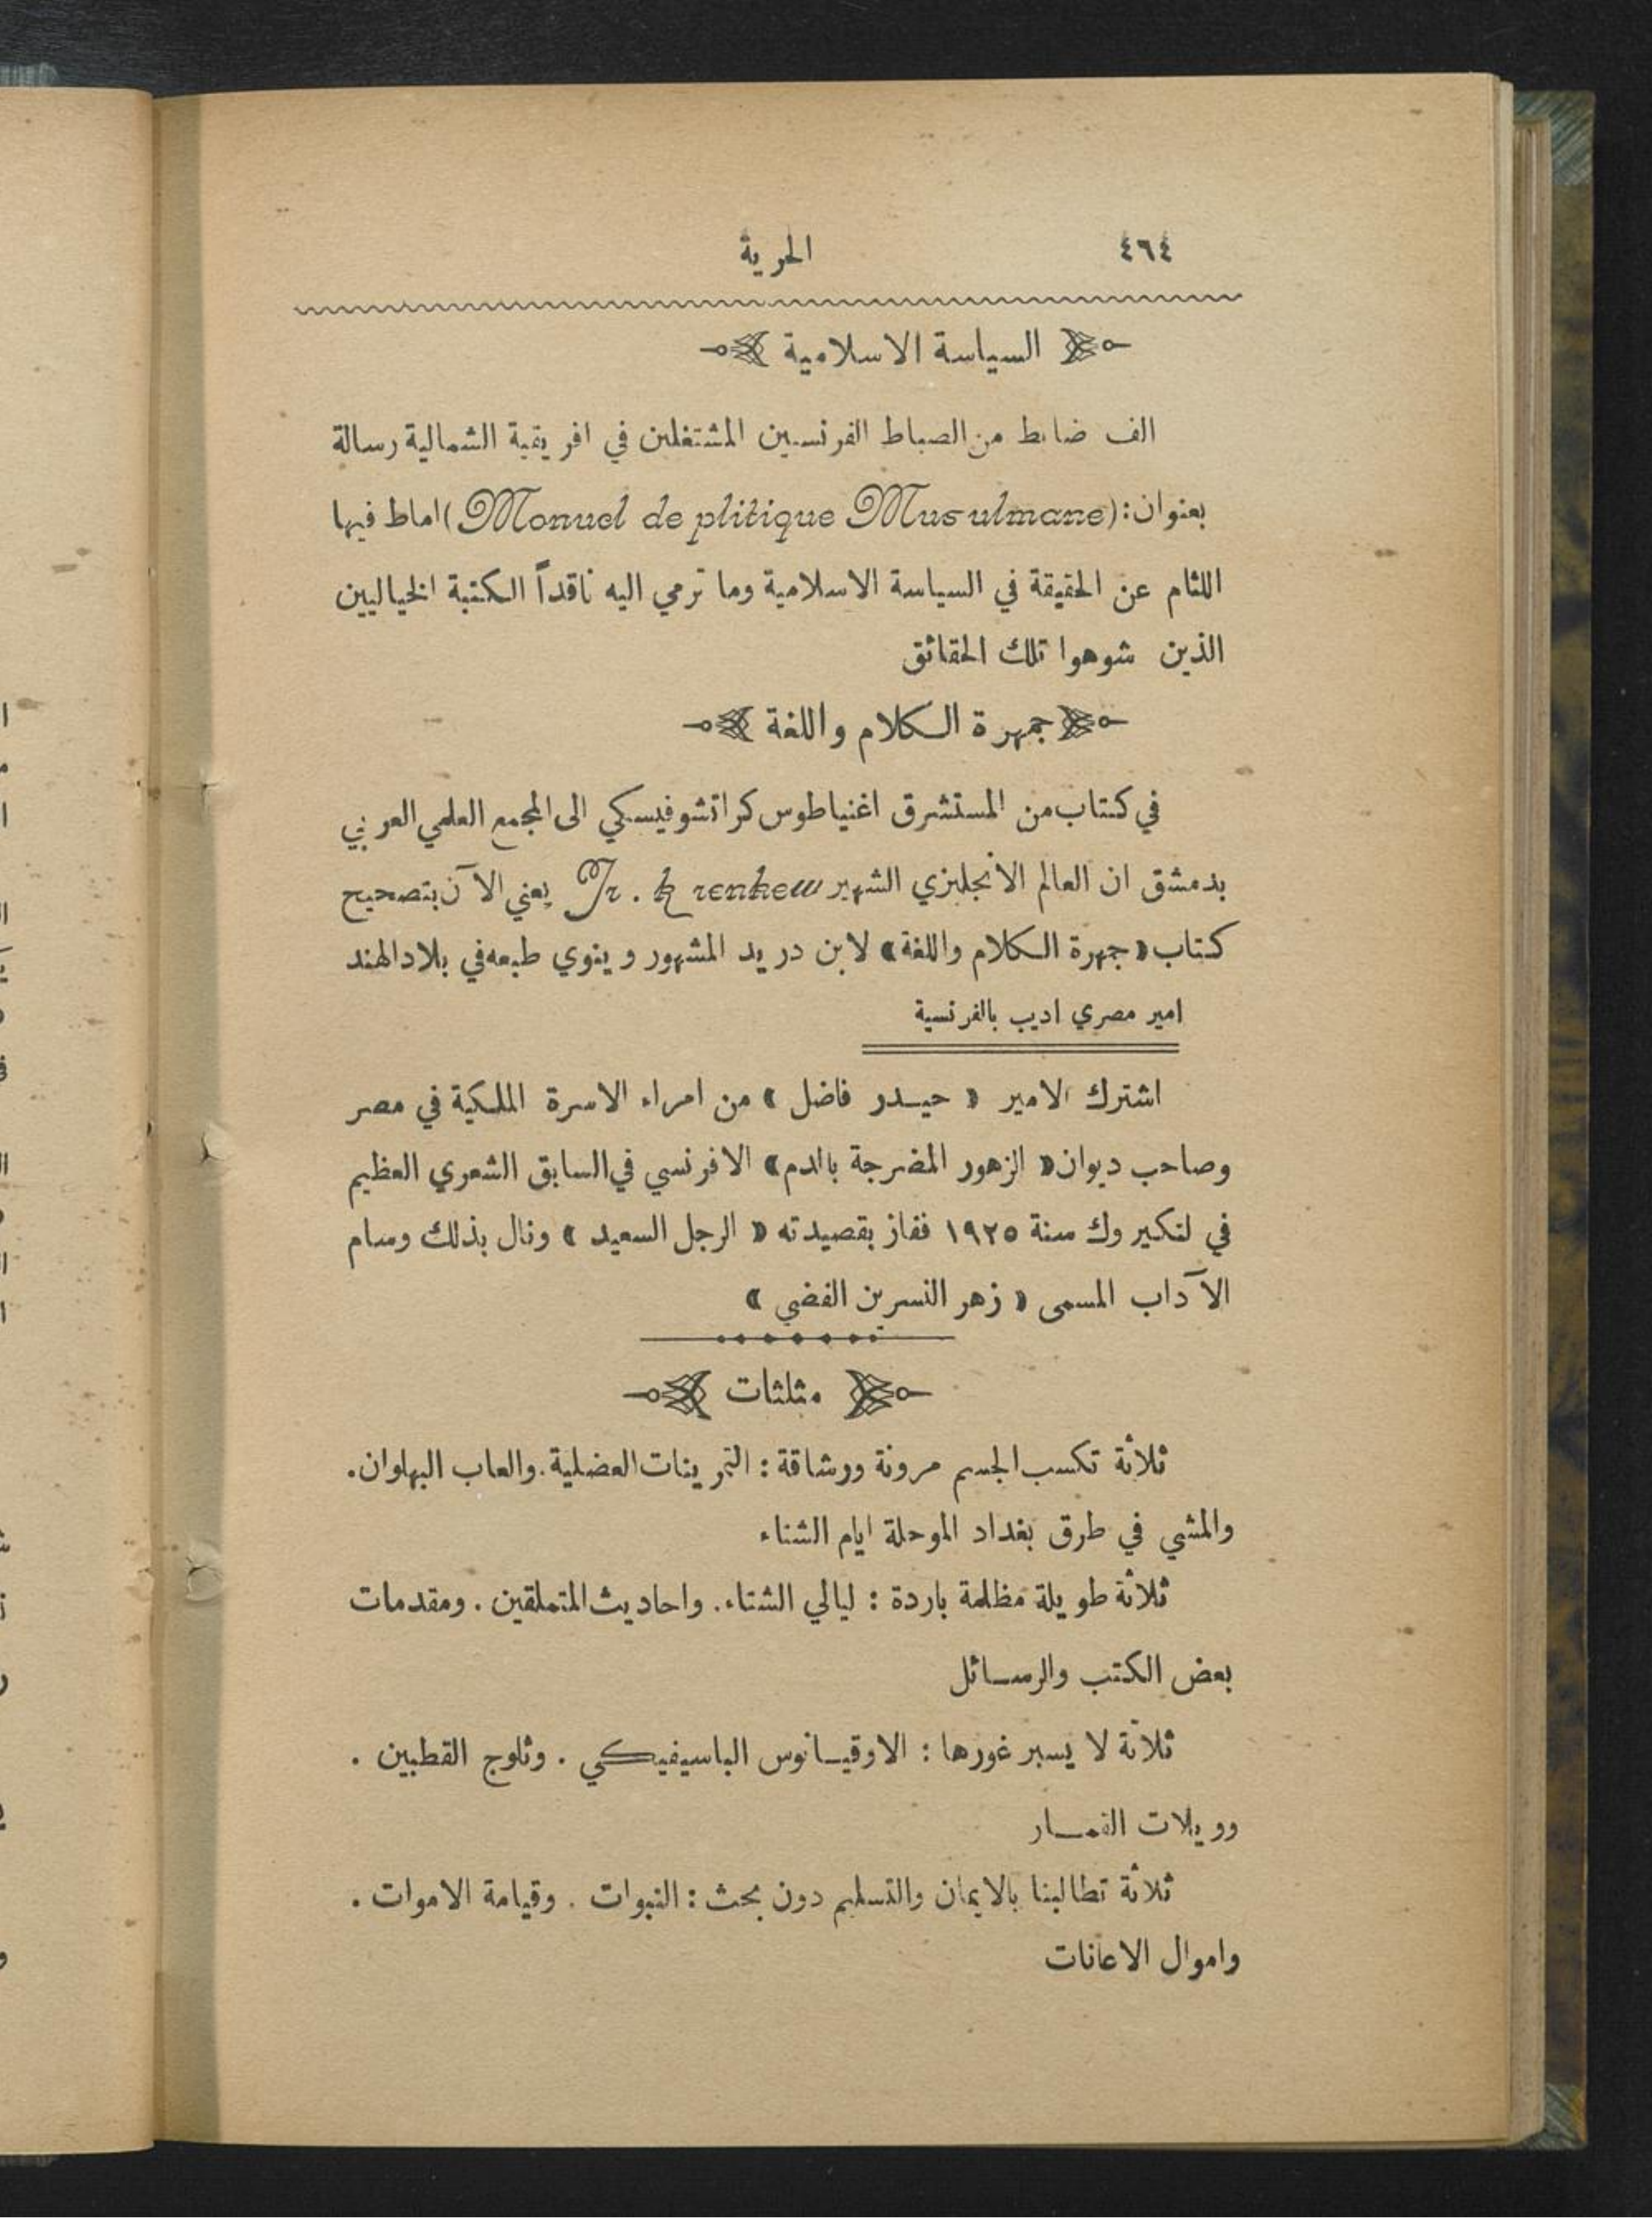 ٤٦٤ الحرية
السياسة الاسلامية
الف ضابط من الضباط الفرنسيين المشتغلين في افريقية الشمالية رسالة
بعنوان: (Monuel de plitique Musulmane) اماط فيها
اللثام عن الحقيقة في السياسة الاسلامية وما ترمي اليه ناقداً الكتبة الخياليين
الذين شوهوا تلك الحقائق
جمهرة الكلام واللغة
في كتاب من المستشرق اغنياطوس كراتشوفيسكي الى المجمع العلمي العربي
بدمشق ان العالم الانجليزي الشهير Fr. krenkew يعني الآن بتصحيح
كتاب «جهرة الكلام واللغة» لابن دريد المشهور وينوي طبعه في بلاد الهند
امير مصري اديب بالفرنسية
اشترك الامير « حيدر فاضل » من امراء الاسرة الملكية في مصر
وصاحب ديوان « الزهور المضرجة بالدم » الافرنسي في السابق الشعري العظيم
في لنكيروك سنة ١٩٢٥ ففاز بقصيدته « الرجل السعيد » ونال بذلك وسام
الآداب المسمى « زهر النسرين الفضي »
مثلثات
ثلاثة تكسب الجسم مرونة ورشاقة : التمرينات العضلية. والعاب البهلوان.
والمشي في طرق بغداد الموحلة ايام الشتاء
ثلاثة طويلة مظلمة باردة : ليالي الشتاء. واحاديث المتملقين . ومقدمات
بعض الكتب والرسائل
ثلاثة لا يسبر غورها : الاوقيانوس الباسيفيكي . وثلوج القطبين .
وويلات القمار
ثلاثة تطالبنا بالايمان والتسليم دون بحث : النبوات . وقيامة الاموات .
واموال الاعانات